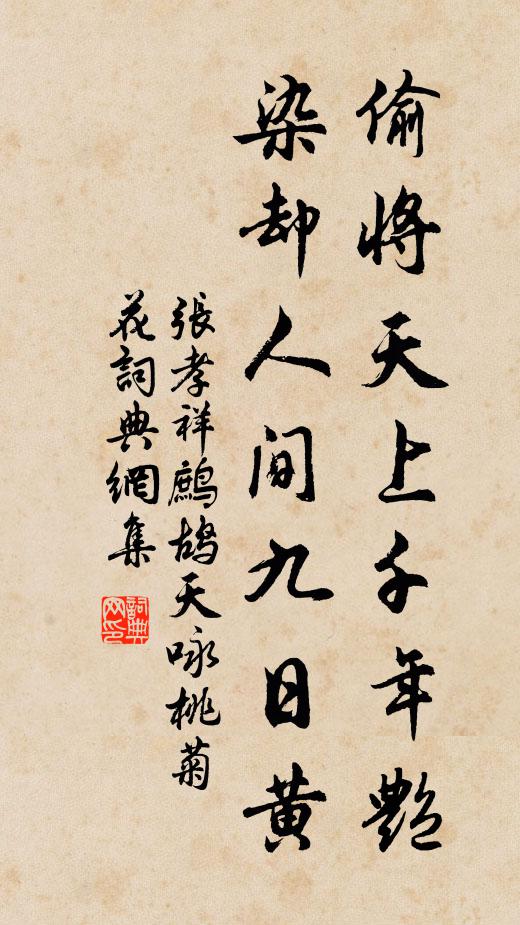 偷將天上千年艷
染却人間九日黄
張孝祥鷓鴣天咏桃菊
花詞典網集
詞典
网印